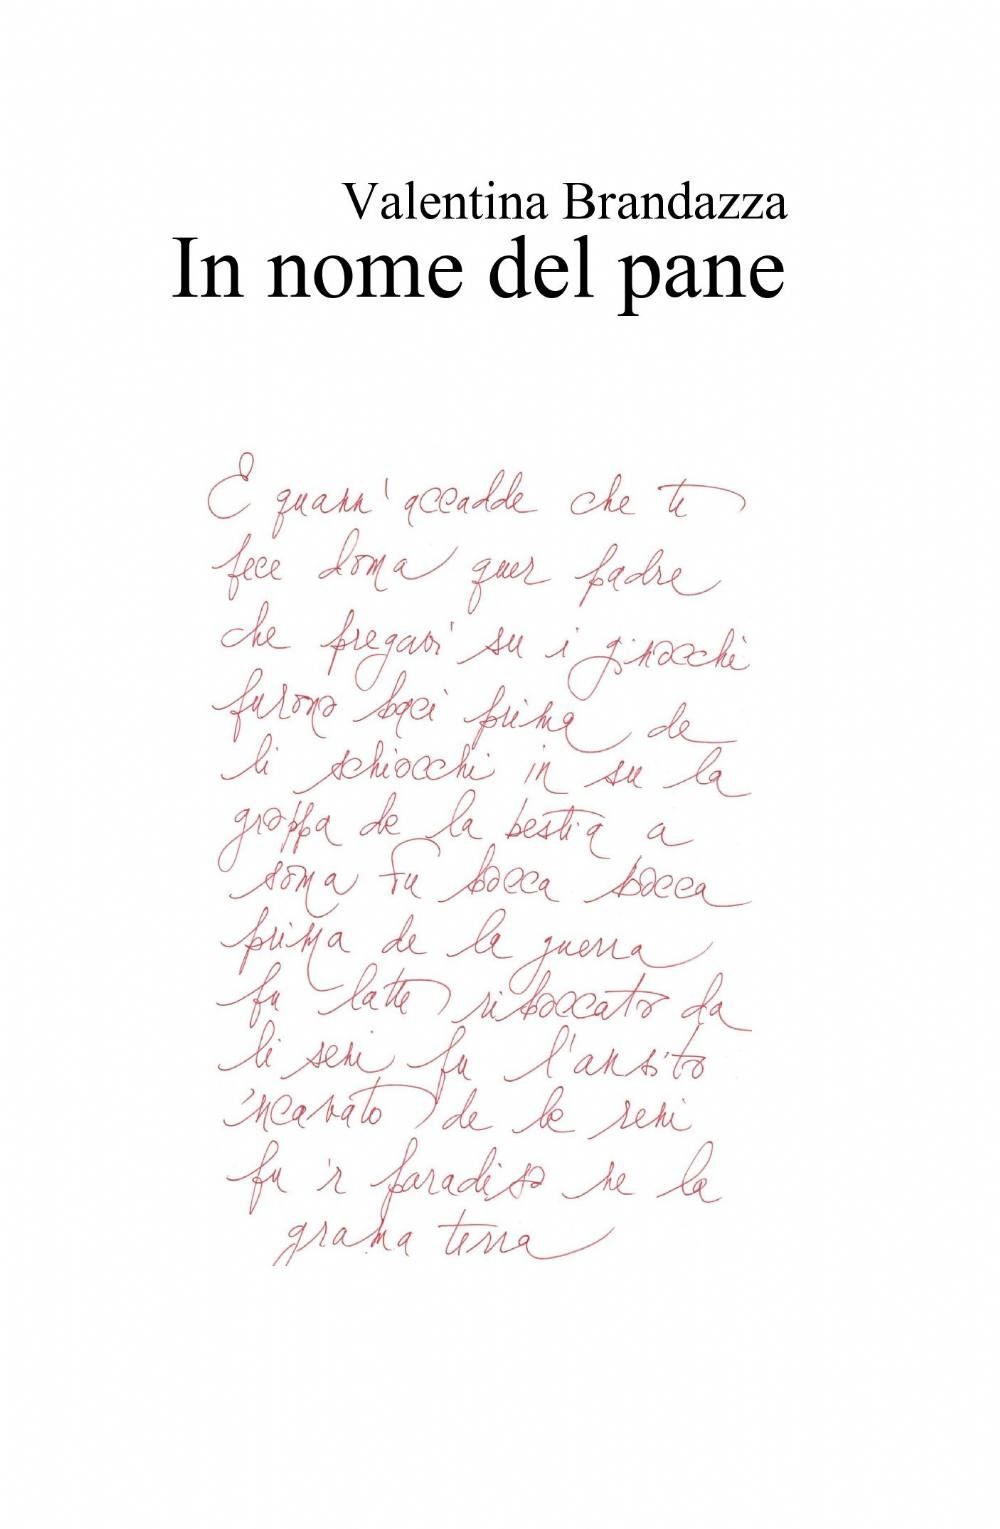 Valentina Brandazza
In nome del pane
E quann' accadde che ti
fece doma quer padre
che pregavi su i ginocchi
furono baci prima de
li schiocchi in su la
groppa de la bestia a
soma fu bocca bocca
prima de la guerra
fu latte riboccato da
li seni fu l'ansito
incavato de le reni
fu 'r paradiso ne la
grama terra